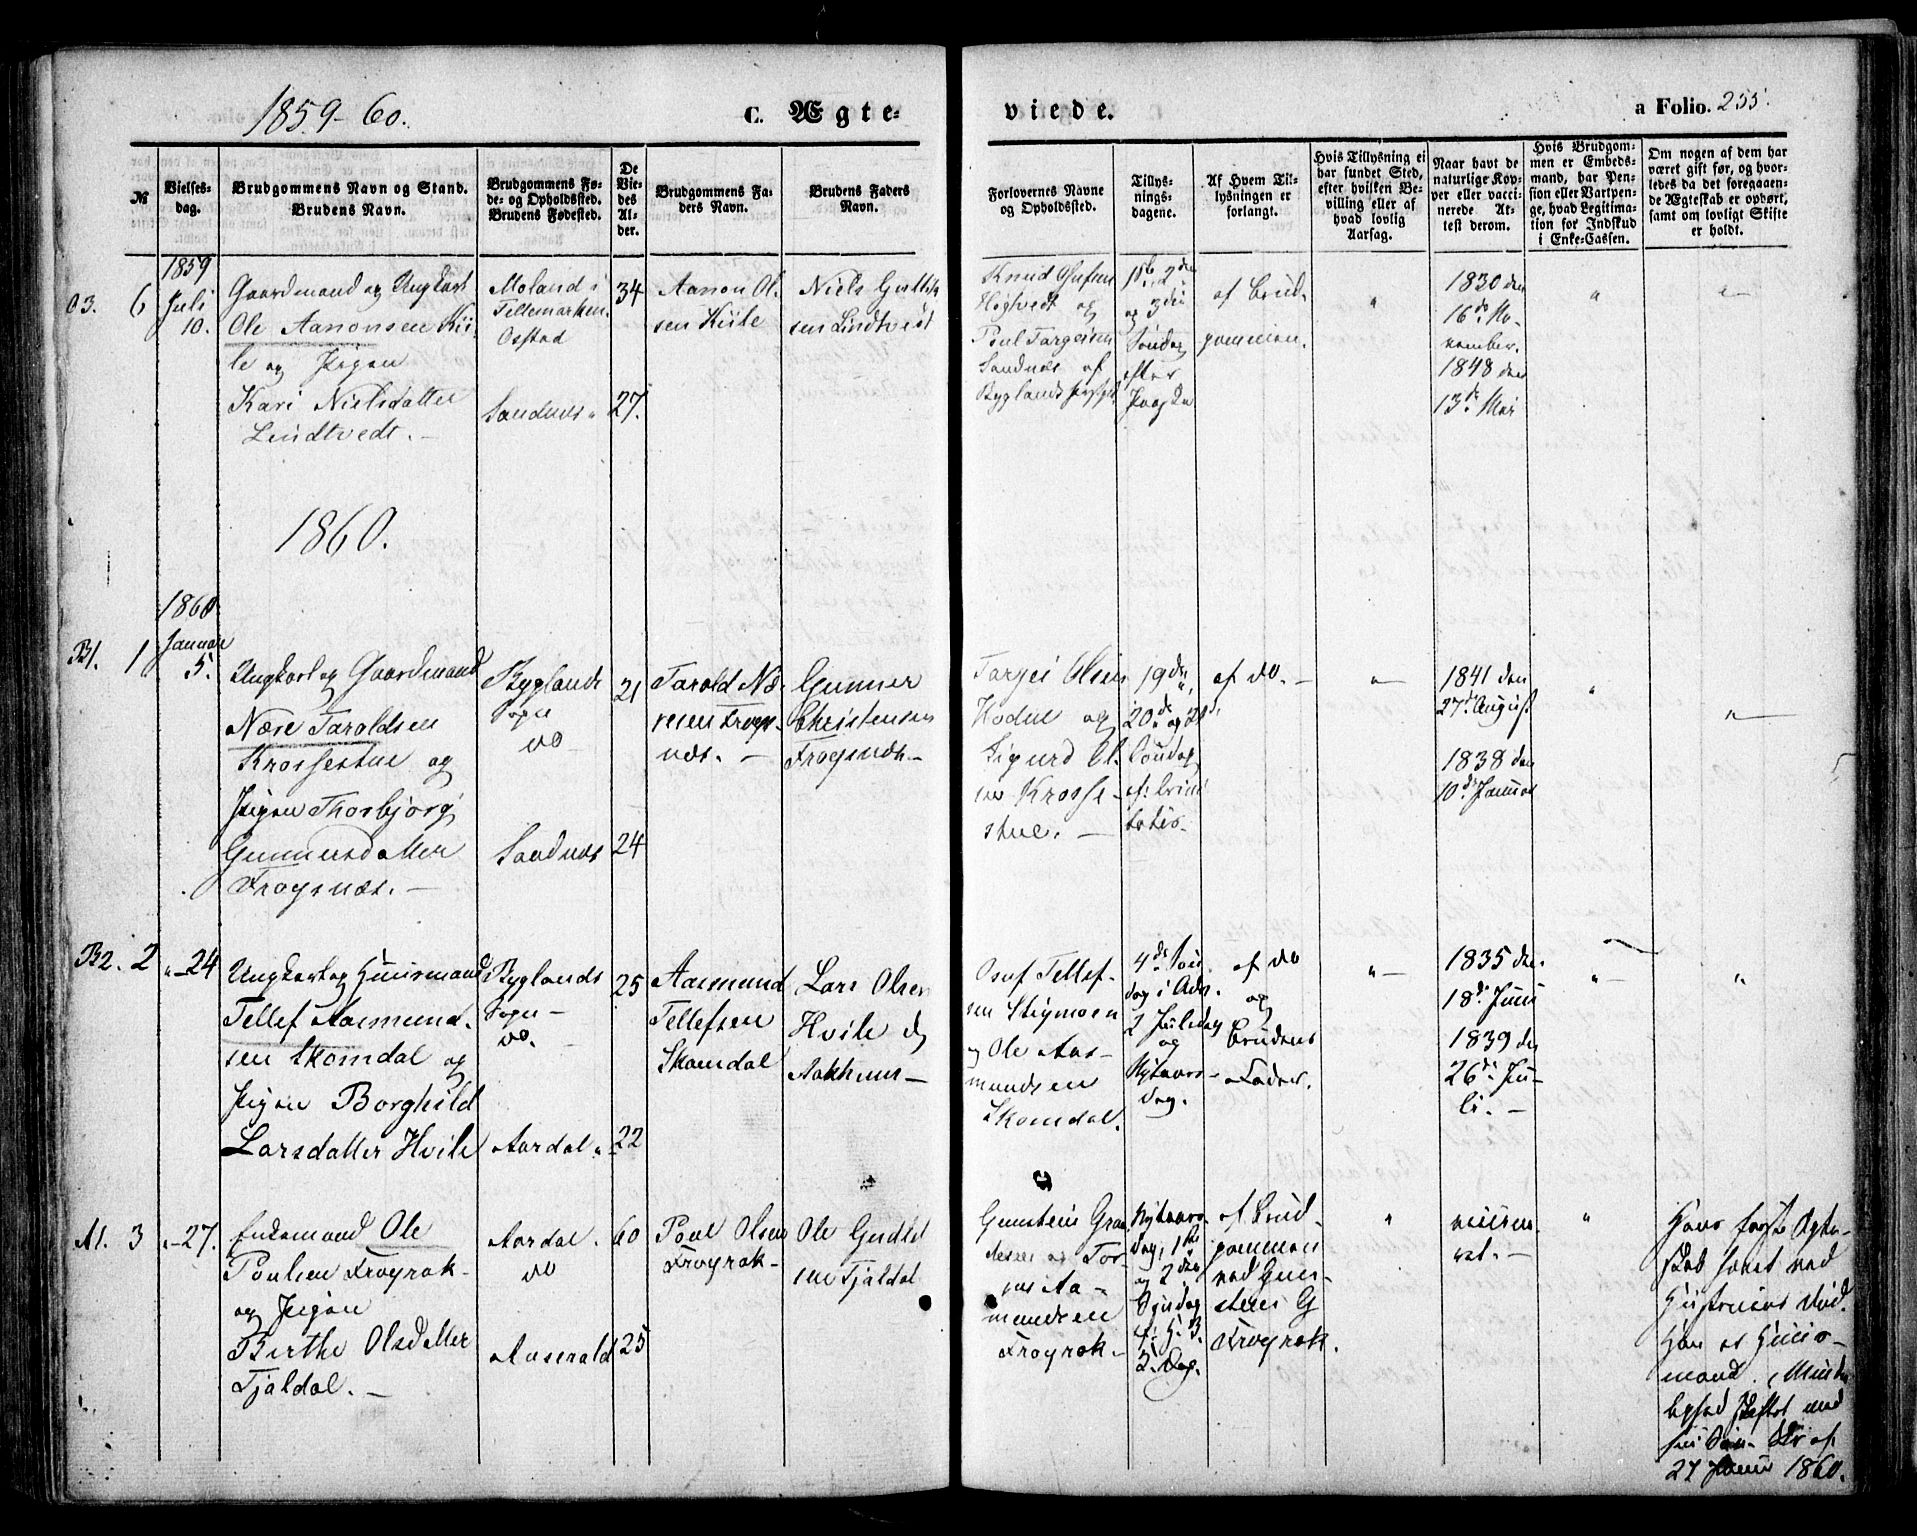 1859-60.
C. Ægte-
viede.
a Folio. 255.
№
Vielses-
dag.
Brudgommens Navn og Stand.
Brudens Navn.
Brudgommens Fø-
de- og Opholdssted.
Brudens Fødested.
De
Vie-
des
Al-
der.
Brudgommens Fa-
ders Navn.
Brudens Faders
Navn.
Forlovernes Navne
og Opholdssted.
Tillys-
nings-
dagene.
Af Hvem Til-
lysningen er
forlangt.
Hvis Tillysning ei
har fundet Sted,
efter hvilken Be-
villing eller af
hvad lovlig
Aarsag.
Naar havt de
naturlige Kop-
per eller vacci-
nerede At-
test derom.
Hvis Brudgom-
men er Embeds-
mand, har Pen-
sion eller Vartpen-
ge, hvad Legitima-
tion for Indskud
i Enke-Cassen.
Om nogen af dem har
været gift før, og hvor-
ledes da det foregaaen-
de Ægteskab er ophørt,
samt om lovligt Skifte
er holdt.
03. 6
1859
Juli
10.
Gaardmand og Ungkarl
Ole Aanonsen Kii-
le og Pigen
Kari Nielsdatter
Lindtvedt. -
Moland i
Tellemarken.
Ostad
Sandnes "
34
27.
Aanon Ol-
sen Kiile
Niels
sen Lindtvedt
Knud
og
Poul Targeisen
Sandnes af
Byglands
1ste, 2den
og 3die
Søndag
efter
Paaske
af Brud-
gommen.
"
1830 den
16de No-
vember.
1848 den
13de Mai
"
"
1860.
1860
Januar
5.
B1. 1
Ungkarl og Gaardmand
Nære Taroldsen
Krossestue og
Pigen Thorbjørg
Gunnersdatter
Frøysnæs. -
Byglands
Sogn
do -
Sandnes
21
24
Tarold Næ-
resen Frøys-
næs. -
Gunner
Christensen
Frøysnæs -
Targei Olsen
og
Sigurd Ol-
sen Krosse-
stue. -
19de,
20de og 21de
Søndag
ef: Trini-
tatis.
af do. -
"
1841 den
27de August
1838 den
10de Januar
"
"
B2. 2
" - 24
Ungkarl og Huusmand
Tellef Aasmund-
sen Skomdal og
Pigen Borghild
Larsdatter Hvile
Byglands
Sogn -
do. -
Aardal "
25
22
Aasmund
Tellefsen
Skomdal
Lars Olsen
Hvile
-
Tellef-
sen
og Ole Aas-
mundsen
Skomdal.
4de Søn-
dag i Adv.
2 Juledag
og
Nytaars-
dag.
af do
og
Brudens
Fader.
" -
1835 den
18de Juni
1839 den
26de Ju-
li. -
"
"
A1. 3
" - 27.
Enkemand Ole
Poulsen Frøyrak-
og Pigen
Birthe Olsdatter
Tjaldal. -
Aardal.
do
Aaserald
60
25
Poul Olsen
Frøyrak-
Ole
sen Tjaldal
Gunsteen
og Tor-
mundsen
Frøyrak -
Nytaars-
dag, 1ste
og 2den
Søndag
ef: H. 3
K. Dag.
af Brud-
gommen
ved Gun-
steen G
Frøyrak.
"
"
Hans første Ægte-
skab hævet ved
Hustruens Død.
Han er Huus-
mand.
Skiftet med
27 1860.